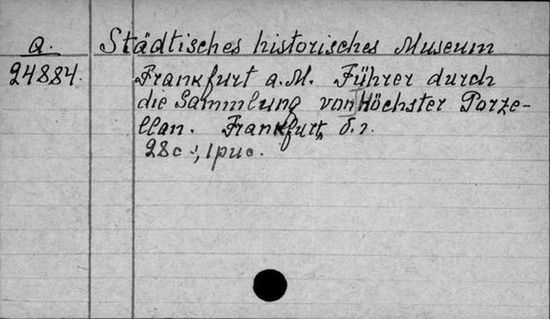 a. Städtisches historisches Museum
24884. Frankfurt a.M. Führer durch
die Sammlung von Höchster Porze-
llan. Frankfurt, б.г.
28с., 1рис.